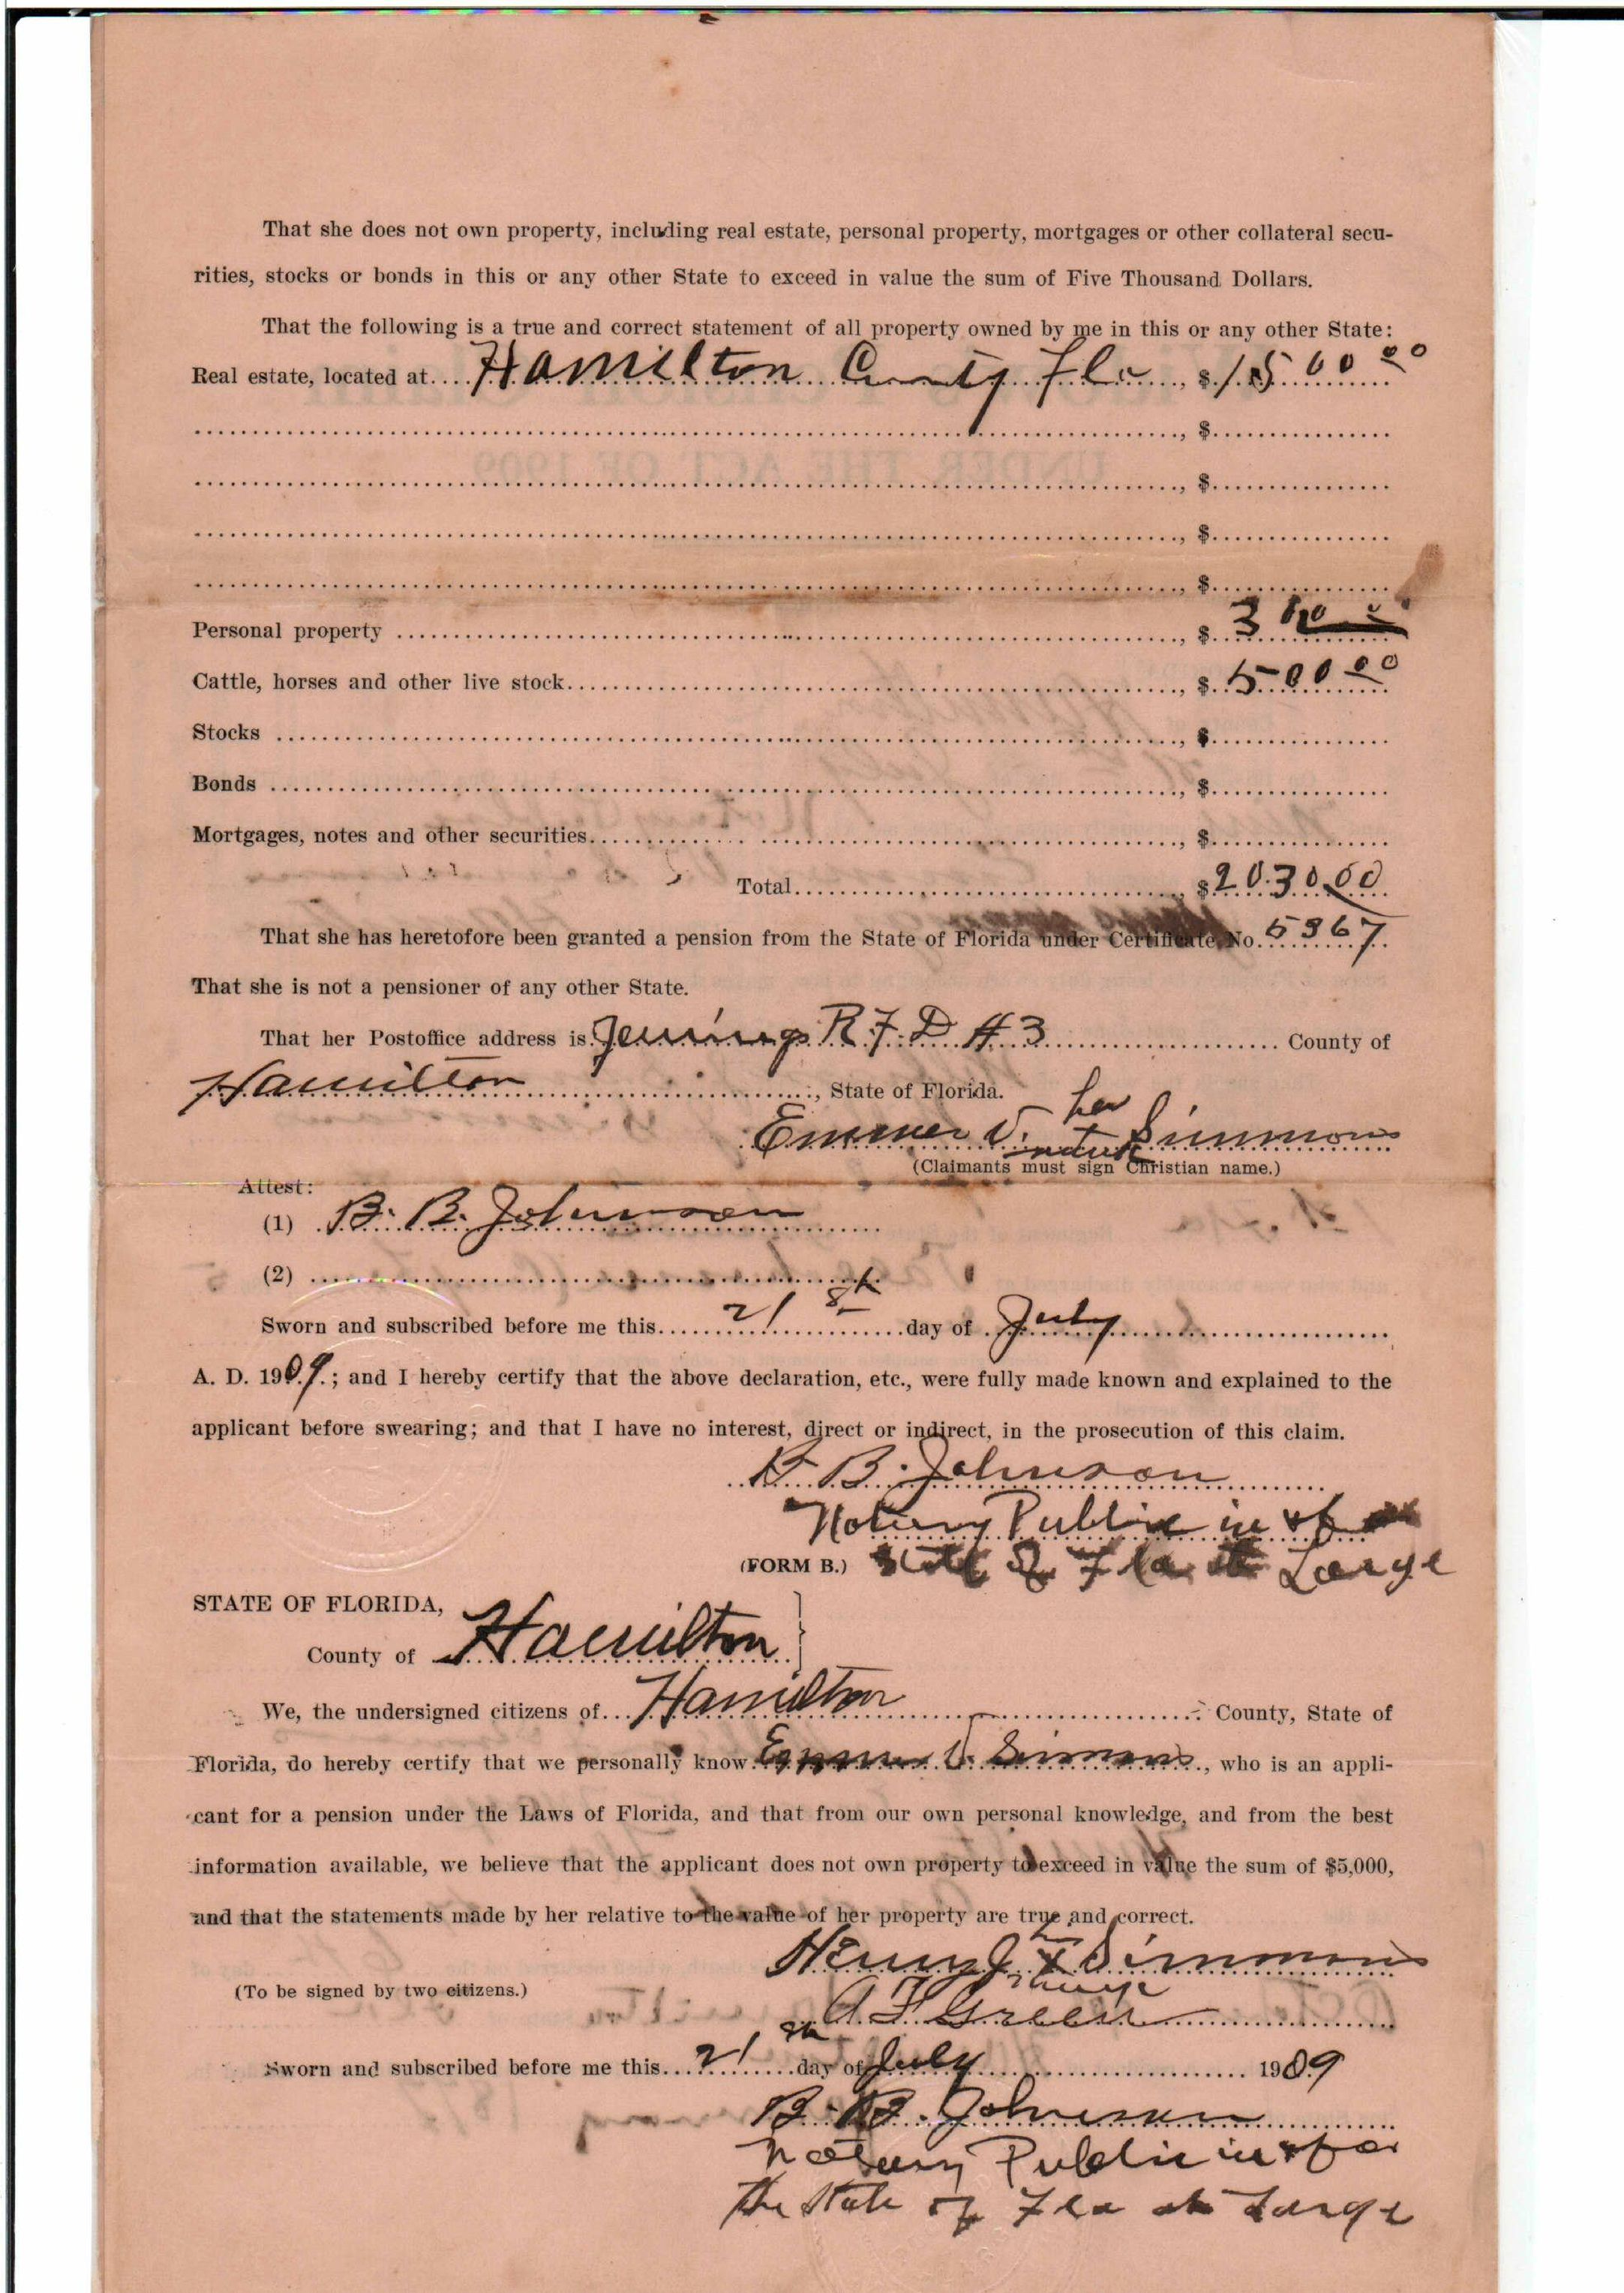 That she does not own property, including real estate, personal property, mortgages or other collateral secu-
rities, stocks or bonds in this or any other State to exceed in value the sum of Five Thousand Dollars.
That the following is a true and correct statement of all property owned by me in this or any other State:
Real estate, located at....Hamilton County Fla, $1500 00
, $
, $
, $
, $
Personal property , $ 3
Cattle, horses and other live stock, $ 500 00
Stocks , $
Bonds , $
Mortgages, notes and other securities, $
Total, $2030 00
That she has heretofore been granted a pension from the State of Florida under Certificate No. 5367
That she is not a pensioner of any other State.
That her Postoffice address is Jennings R.F.D #3 County of
Hamilton, State of Florida.
her
Emmer V. Simmons
mark
(Claimants must sign Christian name.)
Attest:
(1) B. B. Johnson
(2)
Sworn and subscribed before me this 21 day of July
A. D. 1909; and I hereby certify that the above declaration, etc., were fully made known and explained to the
applicant before swearing; and that I have no interest, direct or indirect, in the prosecution of this claim.
B. B. Johnson
Notary Public in & for
(FORM B.) State of Fla at Large
STATE OF FLORIDA,
County of Hamilton }
We, the undersigned citizens of Hamilton County, State of
Florida, do hereby certify that we personally know Emmer V. Simmons, who is an appli-
cant for a pension under the Laws of Florida, and that from our own personal knowledge, and from the best
information available, we believe that the applicant does not own property to exceed in value the sum of $5,000,
and that the statements made by her relative to the value of her property are true and correct.
Henry J x Simmons
(To be signed by two citizens.)
A F Green
Sworn and subscribed before me this 21 day of July 1909
B. B. Johnson
Notary Public in & for
the State of Fla at Large